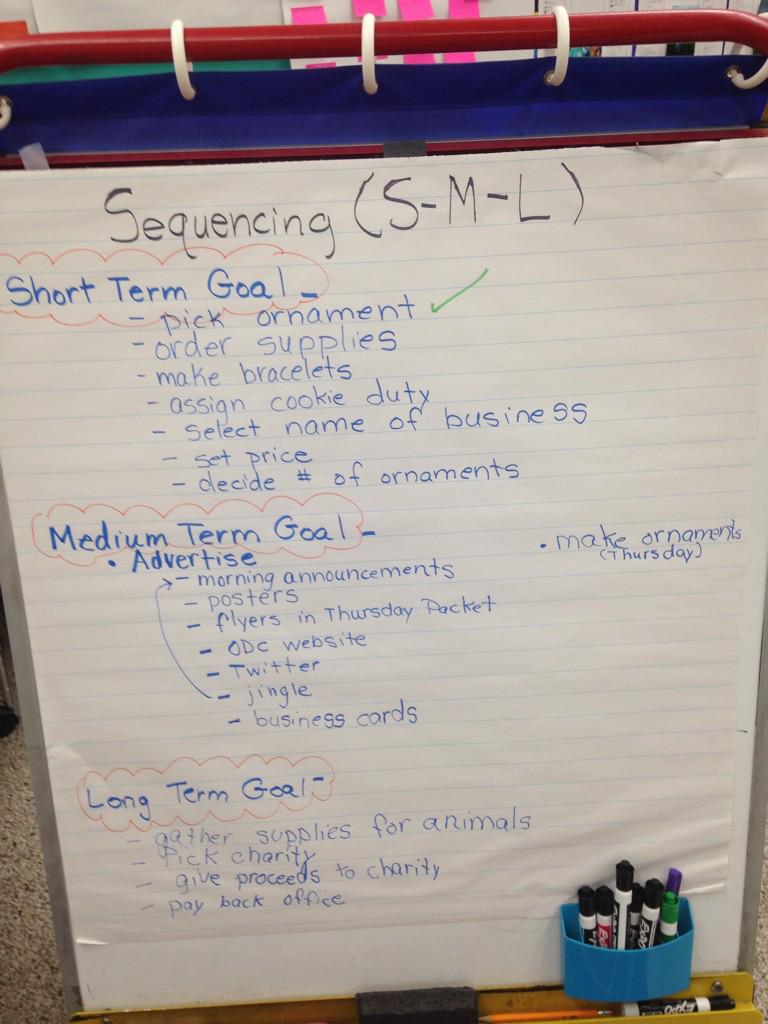 Sequencing (S-M-L)
Short Term Goal -
- pick ornament ✓
- order supplies
- make bracelets
- assign cookie duty
- select name of business
- set price
- decide # of ornaments
Medium Term Goal -
• Advertise
- morning announcements
- posters
- flyers in Thursday Packet
- ODC website
- Twitter
- jingle
- business cards
• make ornaments
(Thursday)
Long Term Goal -
- gather supplies for animals
- Pick charity
- give proceeds to charity
- pay back office
EXPO
EXPO